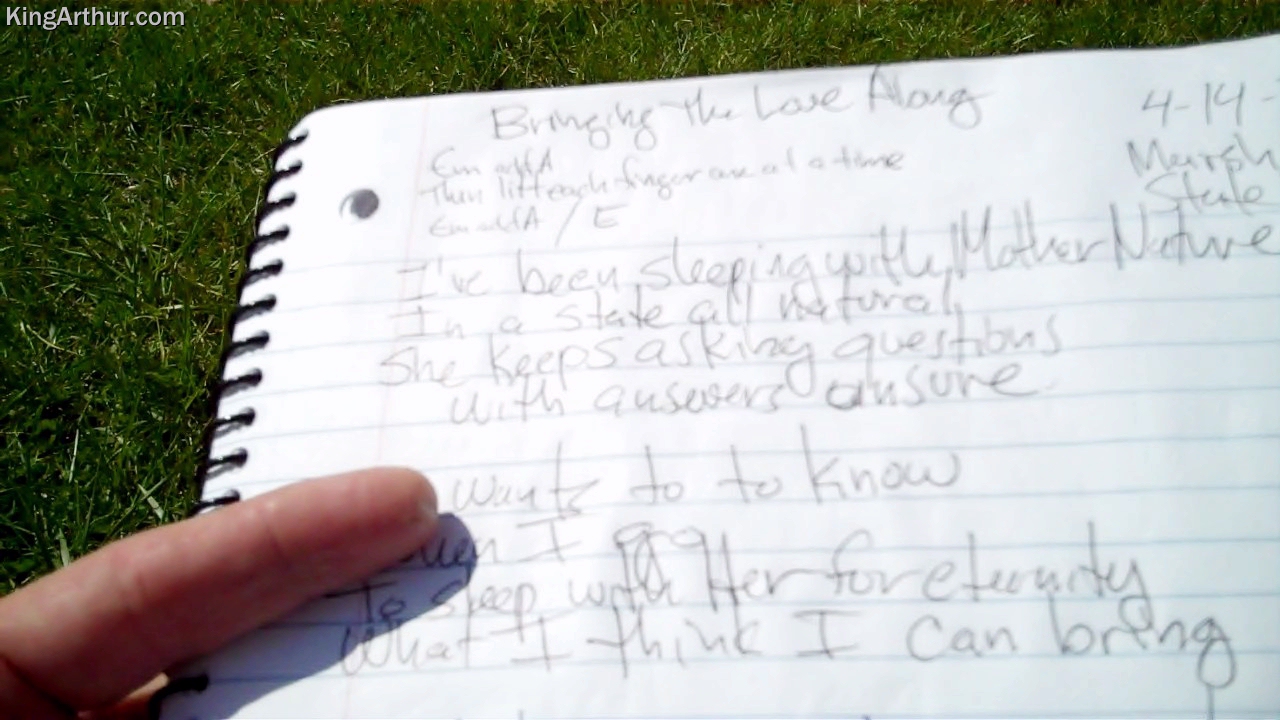 KingArthur.com
Bringing The Love Along
4-14-
Marsh
State
Em add A
Then lift each finger one at a time
Em add A / E
I've been sleeping with Mother Nature
In a state all natural
She keeps asking questions
with answers unsure
wants to to know
When I go
To sleep with Her for eternity
What I think I can bring